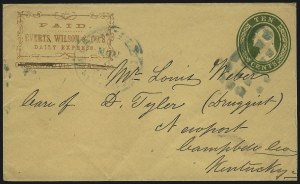 PAID.
EVERTS, WILSON & CO'S
DAILY EXPRESS
TEN
CENTS
Mr. Louis Weber
Care of D. Tyler (Druggist)
Newport
Campbell Co
Kentucky